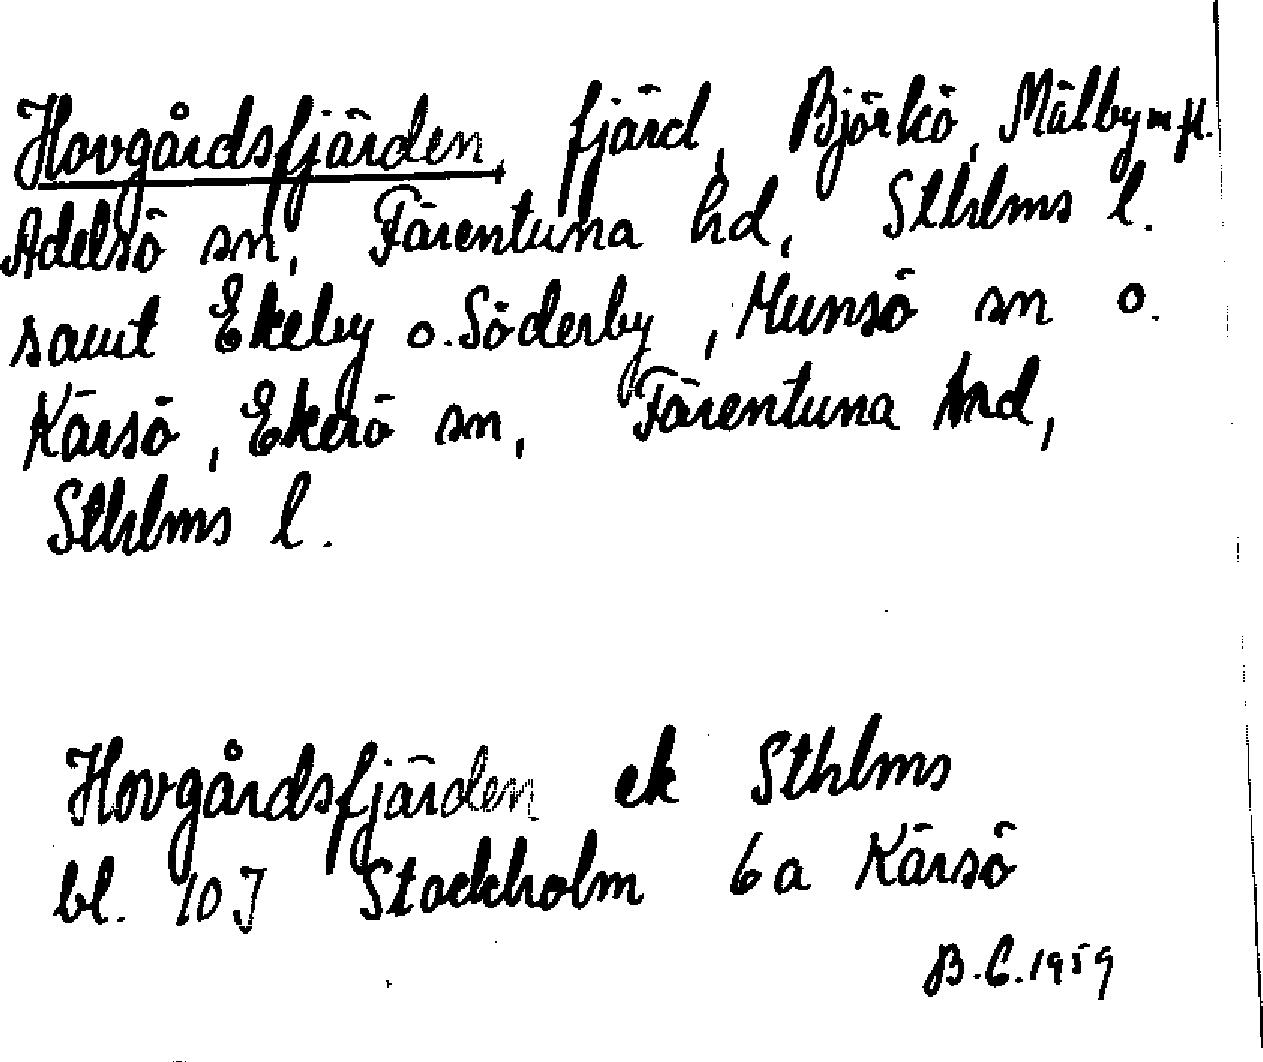 Hovgårdsfjärden, fjärd, Björkö, Mälby m.fl.
Adelsö sn, Färentuna hd, Sthlms l.
samt Ekeby o. Söderby, Munsö sn o.
Kärsö, Ekerö sn, Färentuna hd,
Sthlms l.
Hovgårdsfjärden ek Sthlms
bl. 10 J Stockholm 6a Kärsö
B.C. 1959